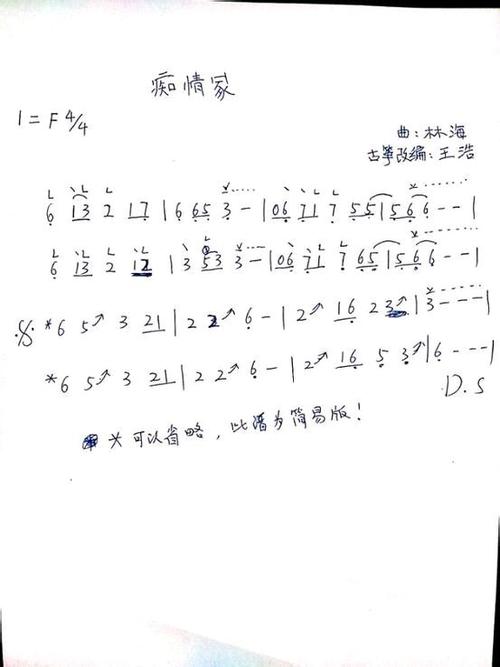 痴情冢
1=F 4/4
曲:林海
古筝改编:王浩
6 13 2 17 | 6 65 3 - | 06 71 7 55 | 566 - - |
6 13 2 12 | 3 53 3 - | 06 71 7 65 | 566 - - |
*6 5↗ 3 21 | 2 2↗ 6 - | 2↗ 16 2 3↗ | 3 - - - |
*6 5↗ 3 21 | 2 2↗ 6 - | 2↗ 16 5 3↗ | 6 - - - |
D.S
* 可以省略,此谱为简易版!